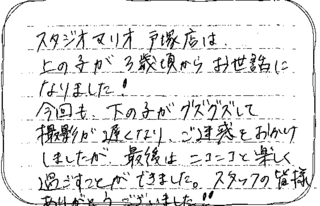 スタジオマリオ 戸塚店は、
上の子が3歳頃からお世話に
なりました!
今回も、下の子がグズグズして
撮影が遅くなり、ご迷惑をおかけ
しましたが、最後はニコニコと楽しく
過ごすことができました。スタッフの皆様
ありがとうございました!!